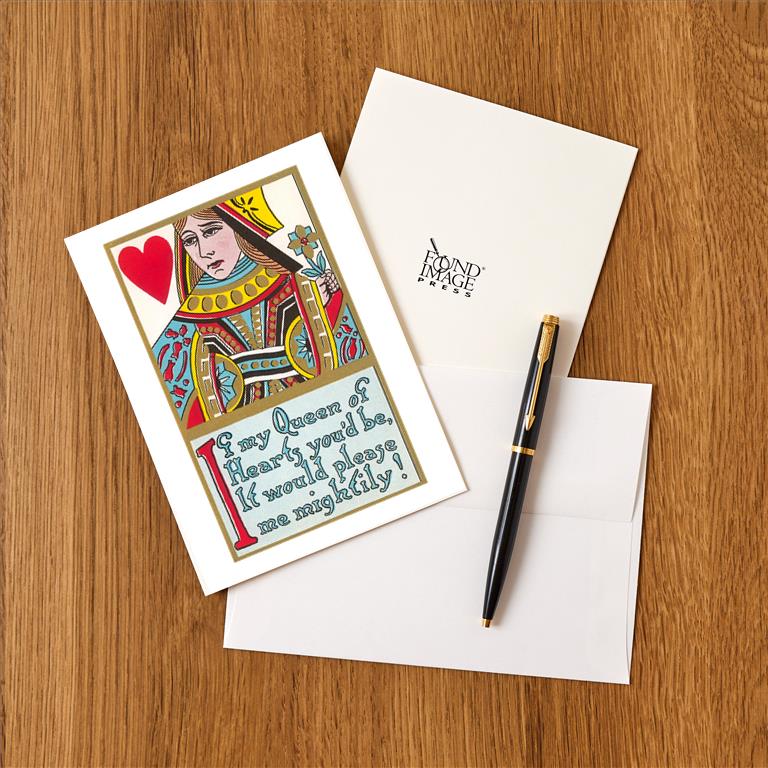 If my Queen of
Hearts you'd be,
It would please
me mightily!
FOUND
IMAGE
PRESS